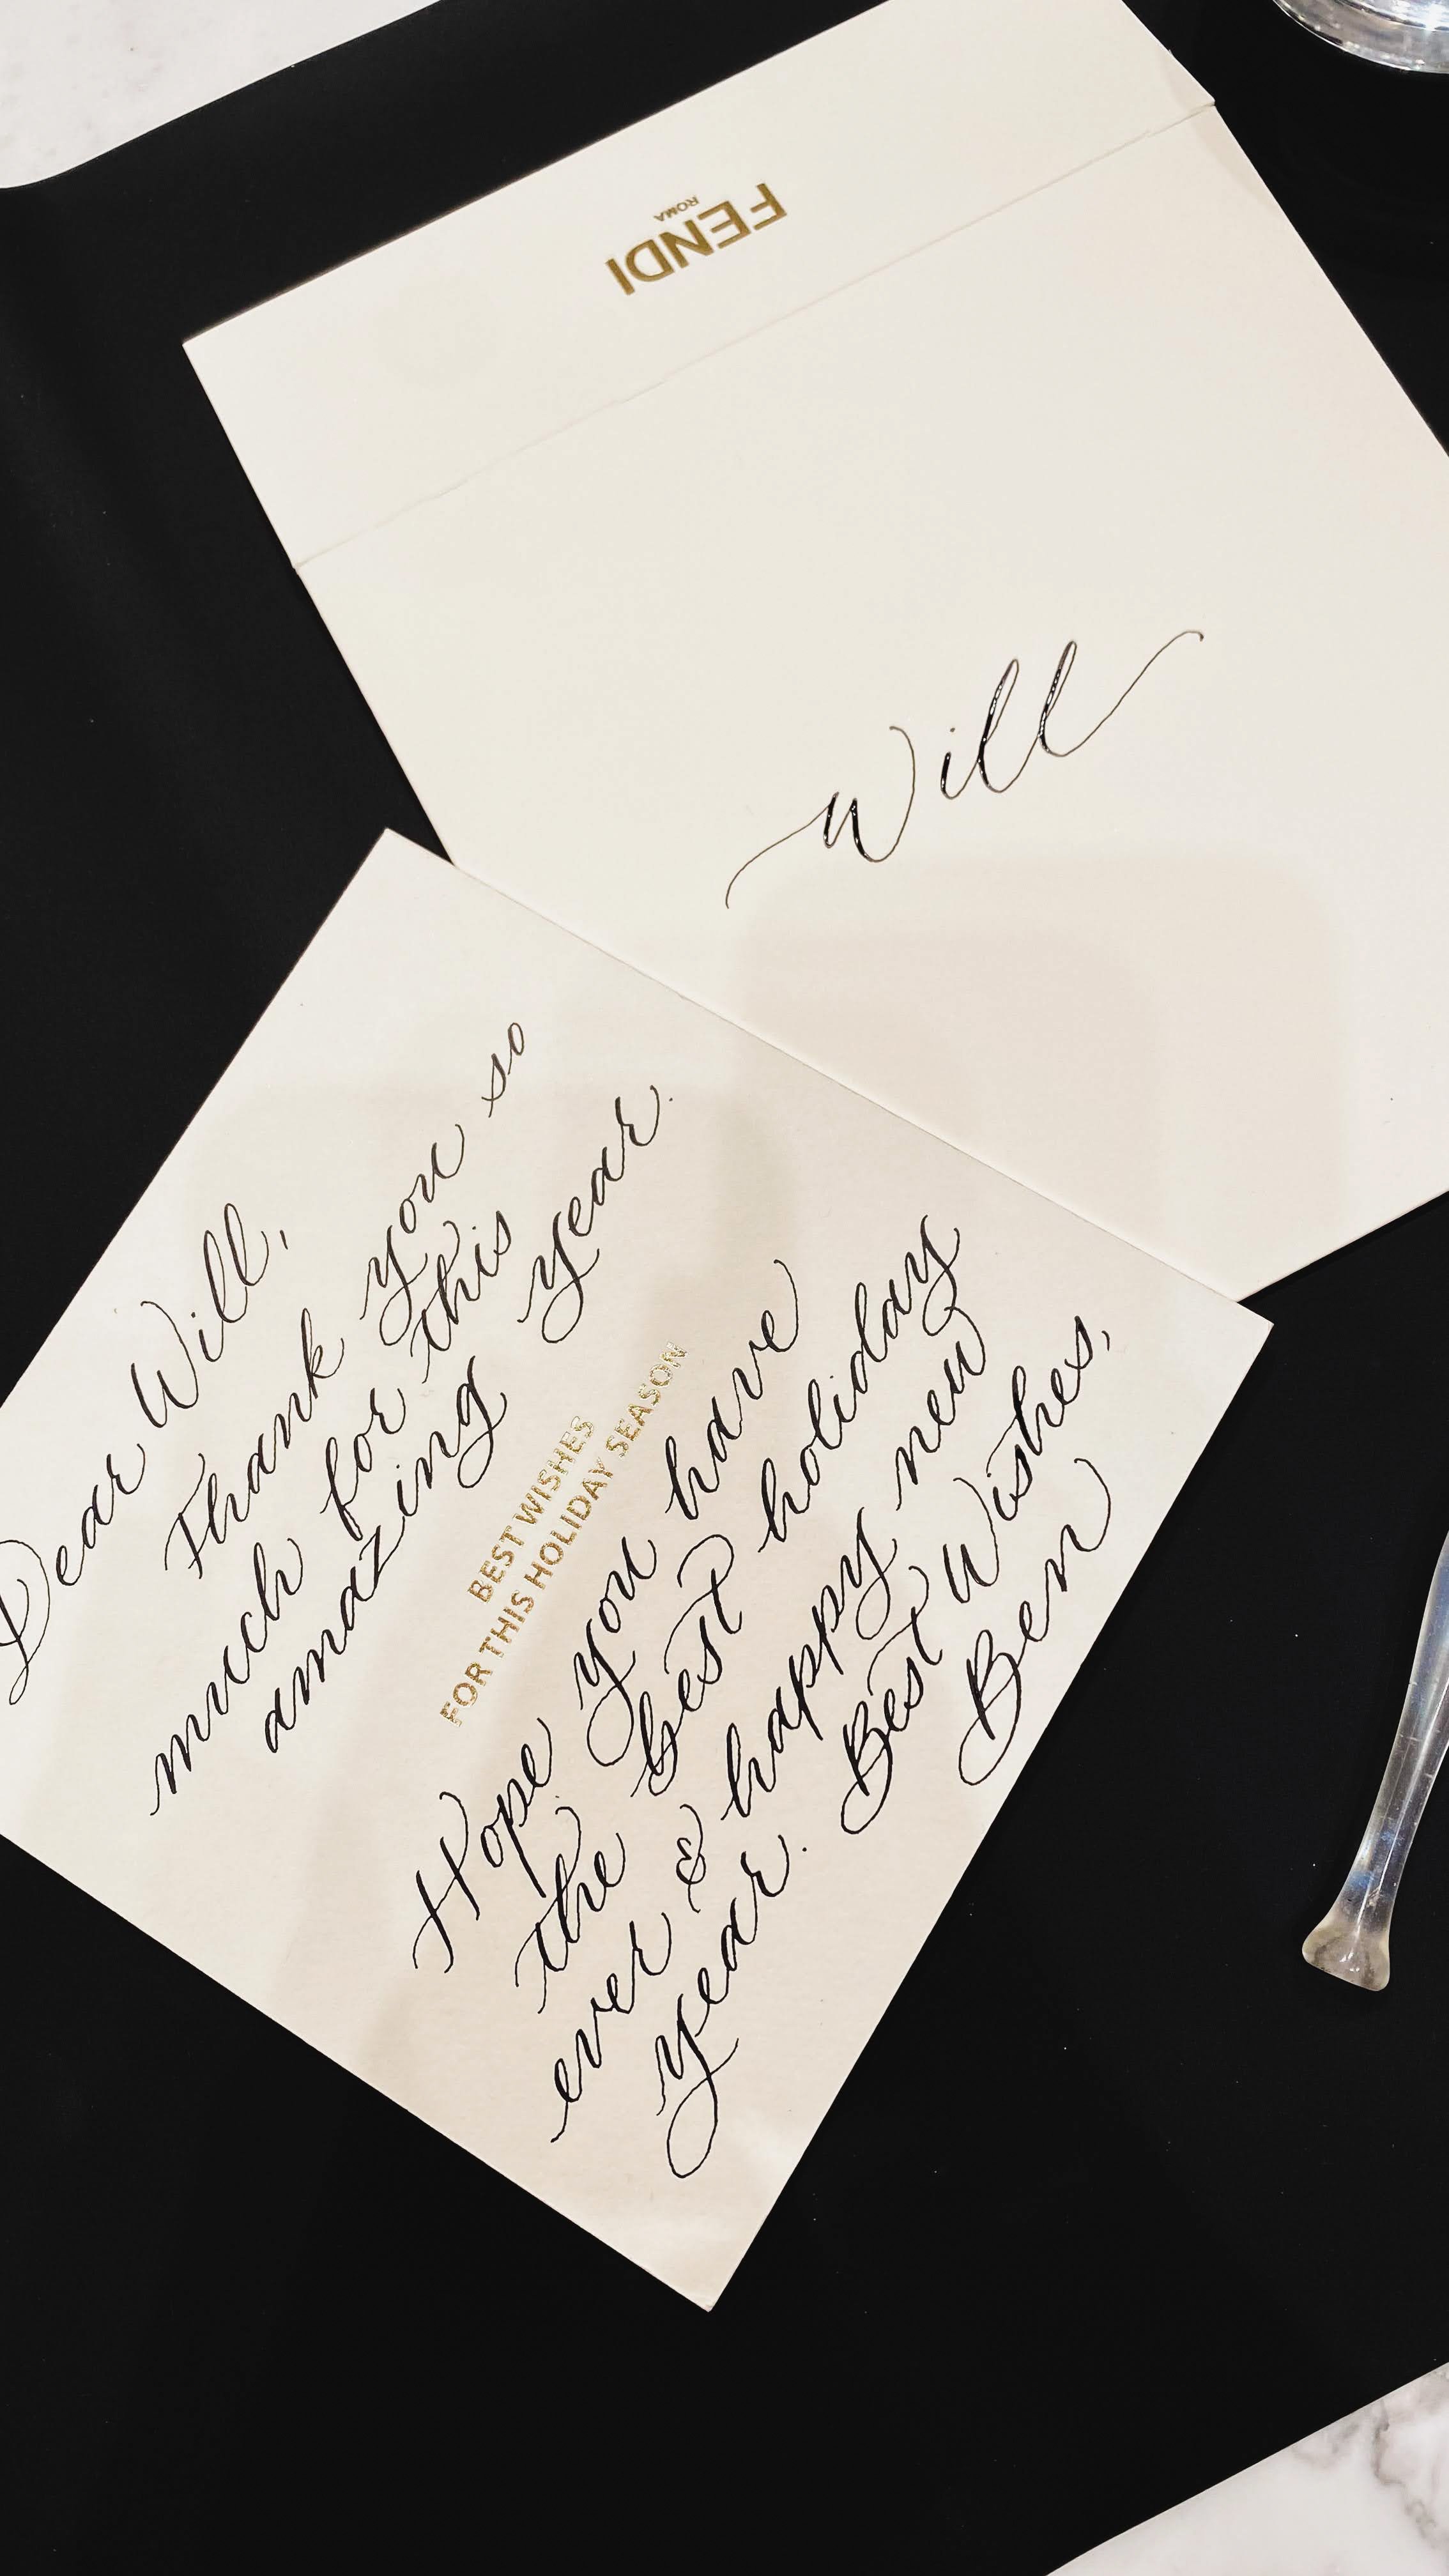 FENDI
ROMA
Will
Dear Will,
Thank you so
much for this
amazing year.
BEST WISHES
FOR THIS HOLIDAY SEASON
Hope you have
the best holiday
ever & happy new
year. Best Wishes,
Ben